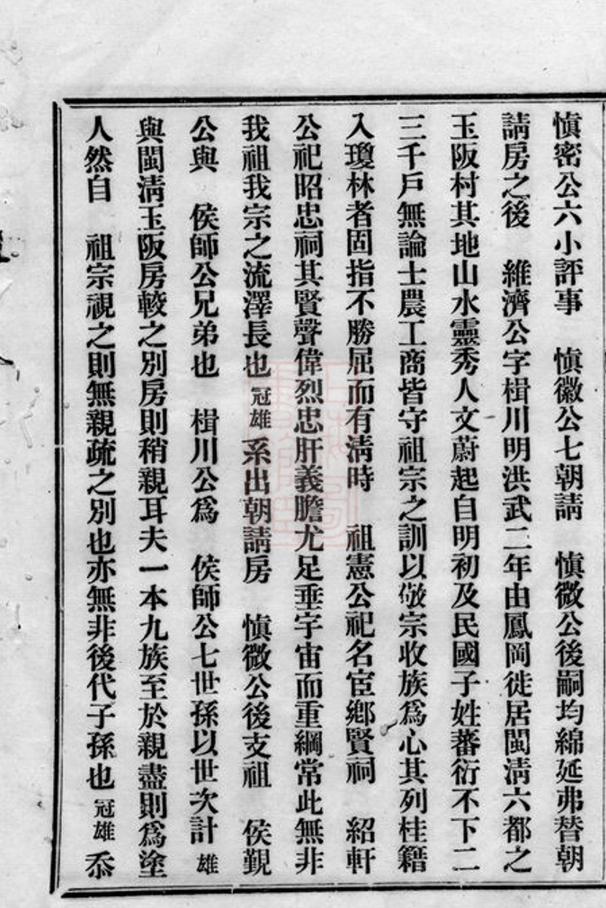 慎密公六小評事　慎徽公七朝請　慎微公後嗣均綿延弗替朝
請房之後　維濟公字楫川明洪武二年由鳳岡徙居閩淸六都之
玉阪村其地山水靈秀人文蔚起自明初及民國子姓蕃衍不下二
三千戶無論士農工商皆守祖宗之訓以敬宗收族爲心其列桂籍
入瓊林者固指不勝屈而有淸時　祖憲公祀名宦鄕賢祠　紹軒
公祀昭忠祠其賢聲偉烈忠肝義膽尤足垂宇宙而重綱常此無非
我祖我宗之流澤長也冠雄系出朝請房　慎微公後支祖　侯觐
公與　侯師公兄弟也　楫川公爲　侯師公七世孫以世次計雄
與閩淸玉阪房較之别房則稍親耳夫一本九族至於親盡則爲塗
人然自　祖宗視之則無親疏之别也亦無非後代子孫也冠雄忝